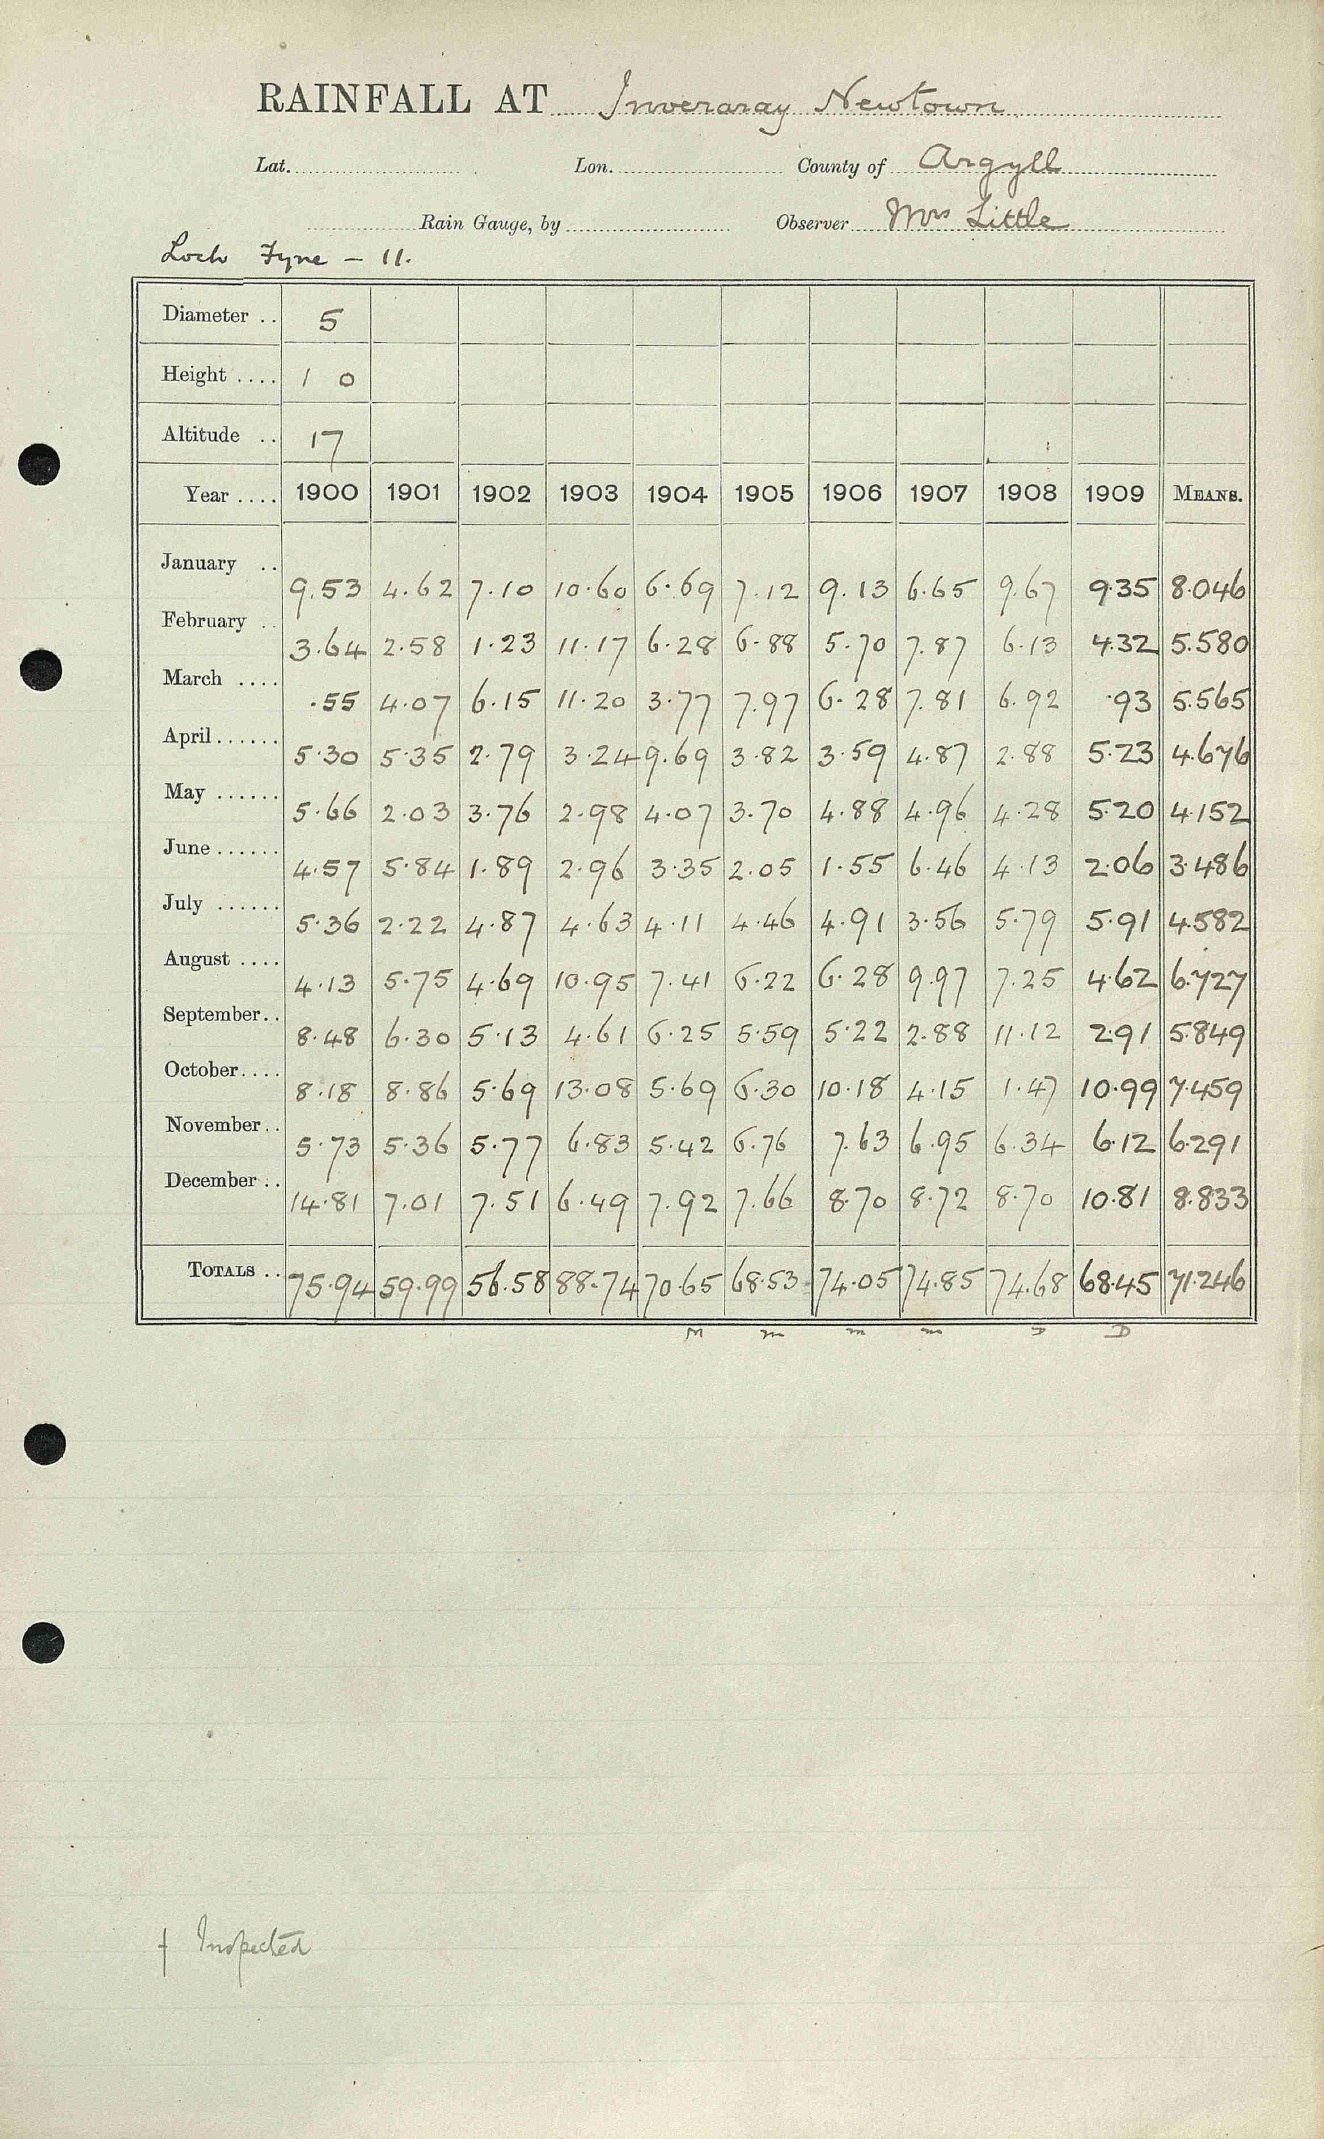 RAINFALL AT Inveraray Newtown
Lat. Lon. County of Argyll
Rain Gauge, by Observer Mrs Little
Loch Fyne - 11.
Diameter .. 5
Height .... 1 0
Altitude .. 17
Year .... 1900 1901 1902 1903 1904 1905 1906 1907 1908 1909 MEANS.
January .. 9.53 4.62 7.10 10.60 6.69 7.12 9.13 6.65 9.67 9.35 8.046
February .. 3.64 2.58 1.23 11.17 6.28 6.88 5.70 7.87 6.13 4.32 5.580
March .... .55 4.07 6.15 11.20 3.77 7.97 6.28 7.81 6.92 .93 5.565
April...... 5.30 5.35 2.79 3.24 9.69 3.82 3.59 4.87 2.88 5.23 4.676
May ...... 5.66 2.03 3.76 2.98 4.07 3.70 4.88 4.96 4.28 5.20 4.152
June...... 4.57 5.84 1.89 2.96 3.35 2.05 1.55 6.46 4.13 2.06 3.486
July ...... 5.36 2.22 4.87 4.63 4.11 4.46 4.91 3.56 5.79 5.91 4.582
August .... 4.13 5.75 4.69 10.95 7.41 6.22 6.28 9.97 7.25 4.62 6.727
September.. 8.48 6.30 5.13 4.61 6.25 5.59 5.22 2.88 11.12 2.91 5.849
October.... 8.18 8.86 5.69 13.08 5.69 6.30 10.18 4.15 1.47 10.99 7.459
November.. 5.73 5.36 5.77 6.83 5.42 6.76 7.63 6.95 6.34 6.12 6.291
December.. 14.81 7.01 7.51 6.49 7.92 7.66 8.70 8.72 8.70 10.81 8.833
TOTALS .. 75.94 59.99 56.58 88.74 70.65 68.53 74.05 74.85 74.68 68.45 71.246
M m m m D D
† Inspected